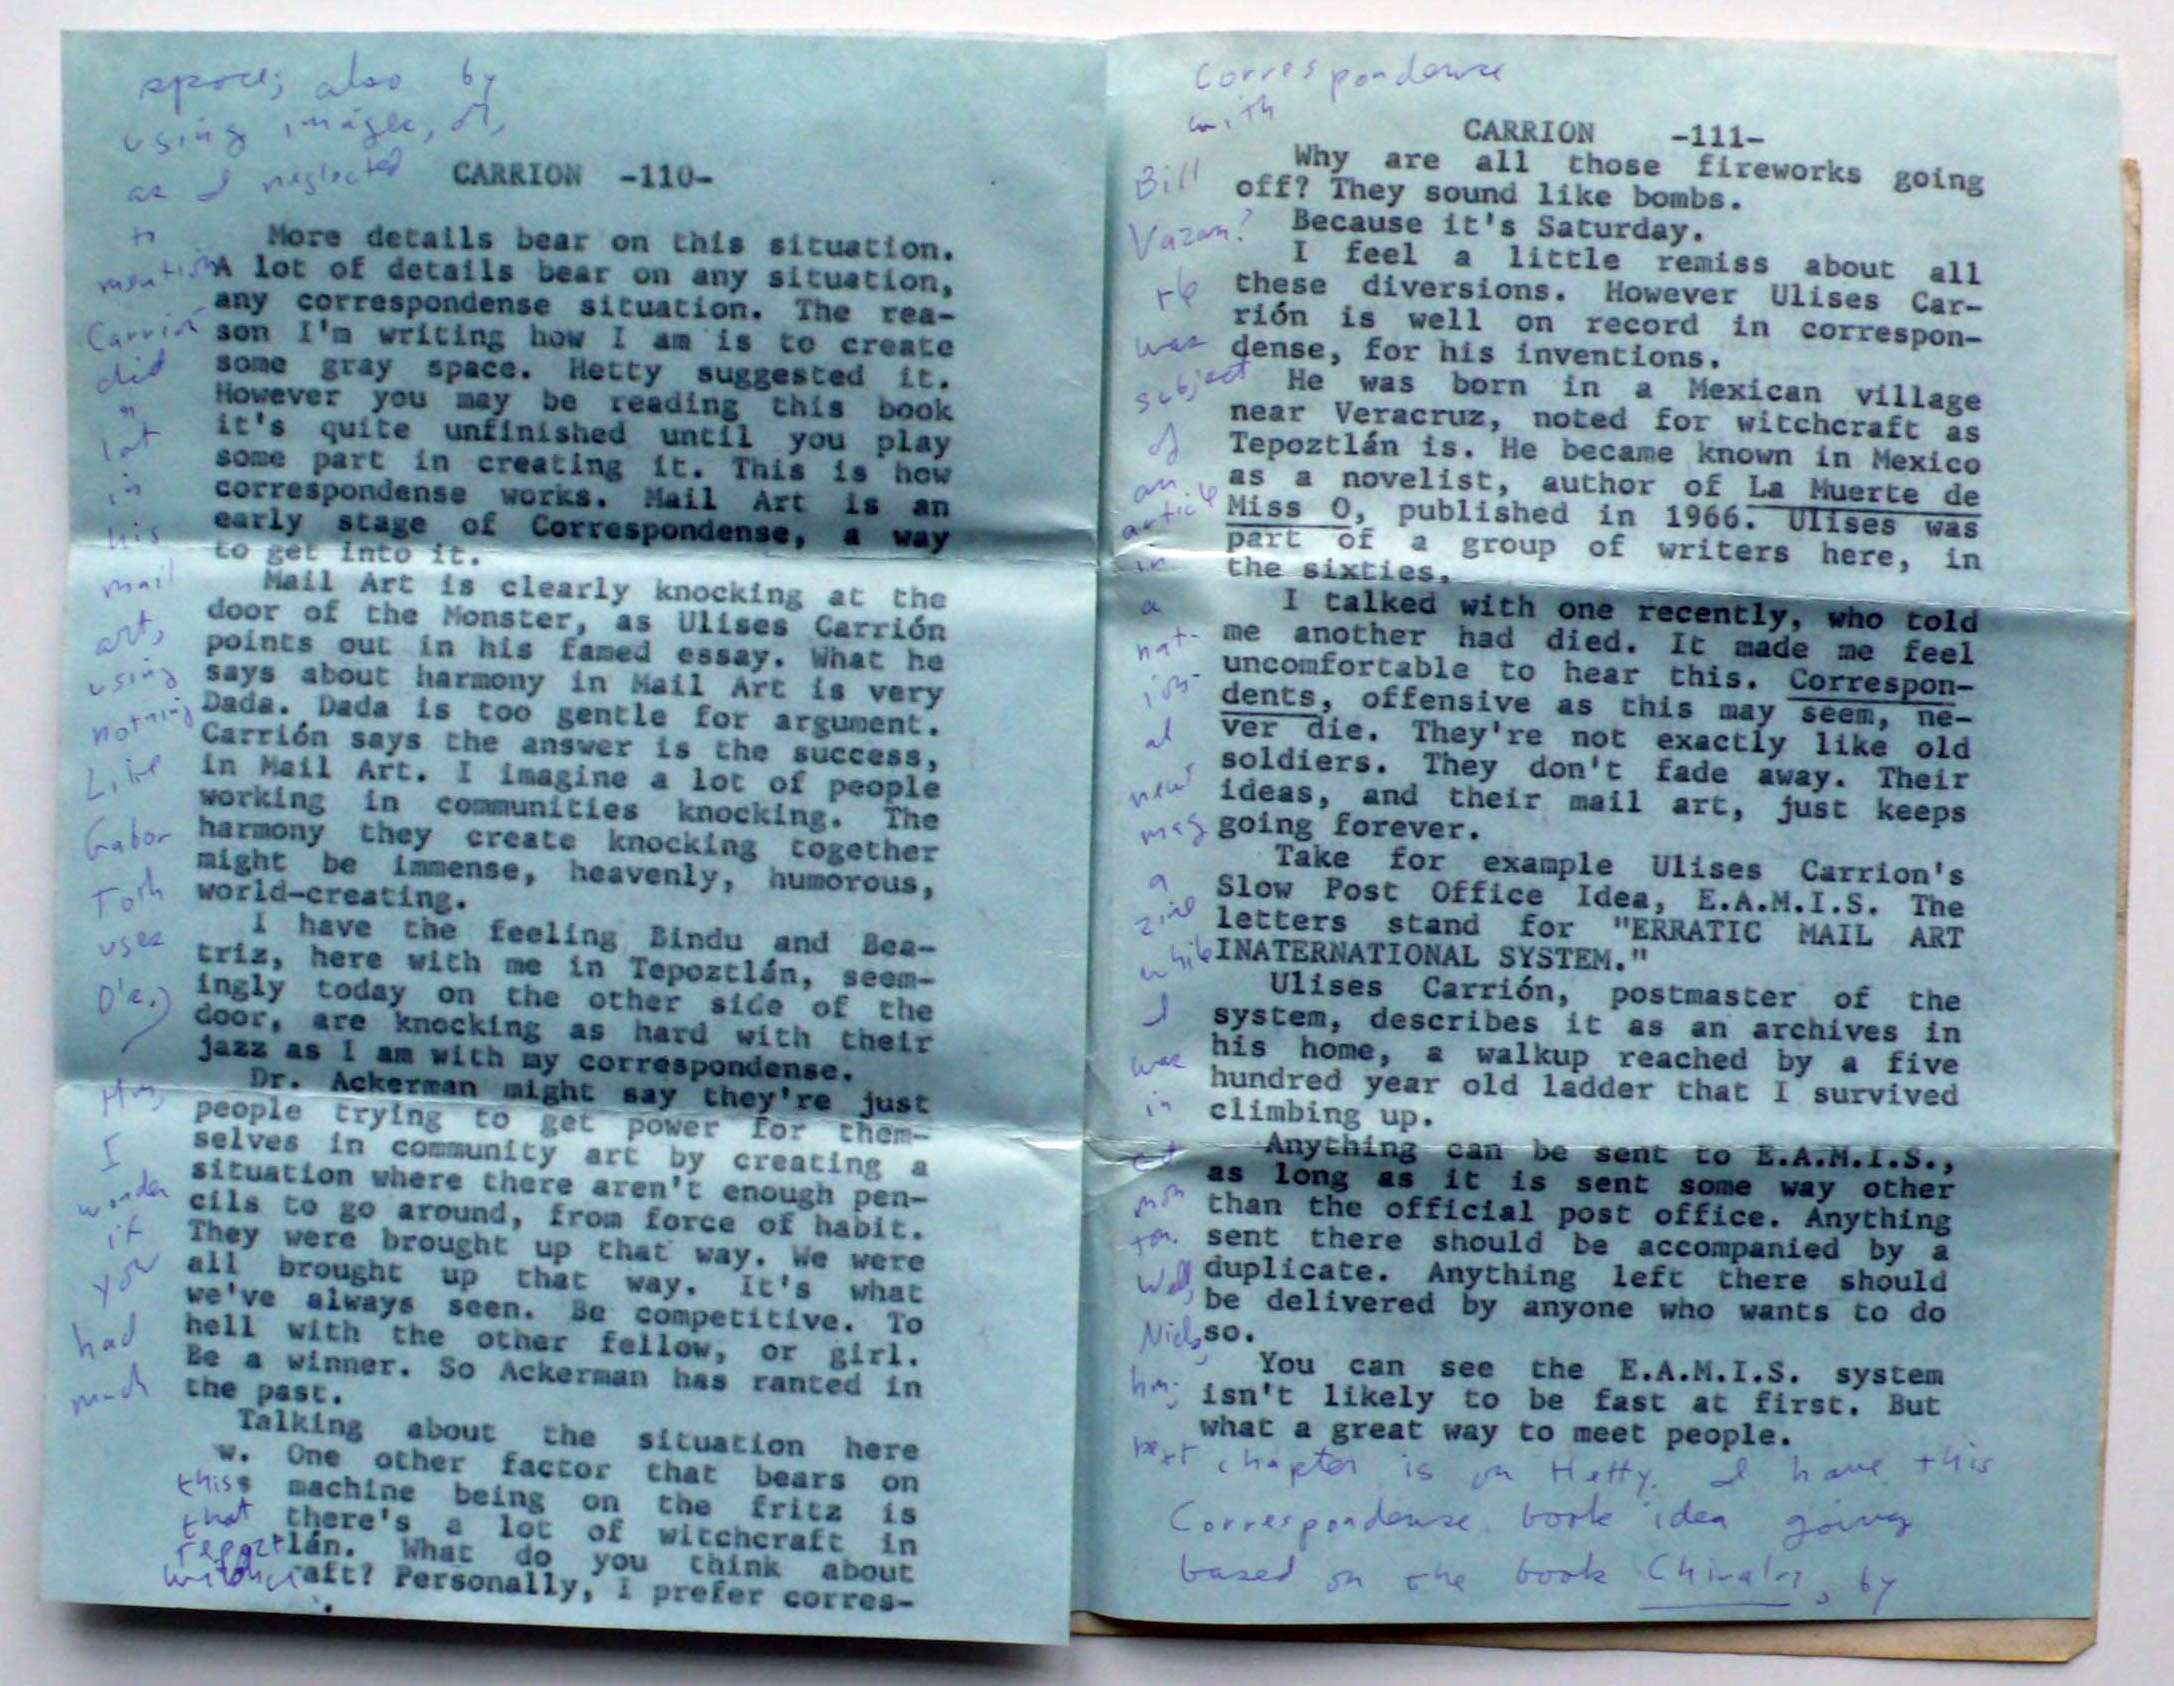 space; also by
using images, or,
as I neglected
to
mention
Carrión
did
a
lot
in
his
mail
art,
using
nothing
Like
Gabor
Toth
uses
O's.)
Hm,
I
wonder
if
you
had
much
CARRION -110-
More details bear on this situation.
A lot of details bear on any situation,
any correspondense situation. The rea-
son I'm writing how I am is to create
some gray space. Hetty suggested it.
However you may be reading this book
it's quite unfinished until you play
some part in creating it. This is how
correspondense works. Mail Art is an
early stage of Correspondense, a way
to get into it.
Mail Art is clearly knocking at the
door of the Monster, as Ulises Carrión
points out in his famed essay. What he
says about harmony in Mail Art is very
Dada. Dada is too gentle for argument.
Carrión says the answer is the success,
in Mail Art. I imagine a lot of people
working in communities knocking. The
harmony they create knocking together
might be immense, heavenly, humorous,
world-creating.
I have the feeling Bindu and Bea-
triz, here with me in Tepoztlán, seem-
ingly today on the other side of the
door, are knocking as hard with their
jazz as I am with my correspondense.
Dr. Ackerman might say they're just
people trying to get power for them-
selves in community art by creating a
situation where there aren't enough pen-
cils to go around, from force of habit.
They were brought up that way. We were
all brought up that way. It's what
we've always seen. Be competitive. To
hell with the other fellow, or girl.
Be a winner. So Ackerman has ranted in
the past.
Talking about the situation here
w. One other factor that bears on
this machine being on the fritz is
that there's a lot of witchcraft in
Tepoztlán. What do you think about
witchcraft? Personally, I prefer corres-
Correspondense
with
Bill
Vazan?
He
was
subject
of
an
article
in
a
nat-
ion-
al
news
mag
a
zine
while
I
was
in
Ed
mon
ton.
Well,
Niels,
hm;
CARRION -111-
Why are all those fireworks going
off? They sound like bombs.
Because it's Saturday.
I feel a little remiss about all
these diversions. However Ulises Car-
rión is well on record in correspon-
dense, for his inventions.
He was born in a Mexican village
near Veracruz, noted for witchcraft as
Tepoztlán is. He became known in Mexico
as a novelist, author of La Muerte de
Miss O, published in 1966. Ulises was
part of a group of writers here, in
the sixties.
I talked with one recently, who told
me another had died. It made me feel
uncomfortable to hear this. Correspon-
dents, offensive as this may seem, ne-
ver die. They're not exactly like old
soldiers. They don't fade away. Their
ideas, and their mail art, just keeps
going forever.
Take for example Ulises Carrion's
Slow Post Office Idea, E.A.M.I.S. The
letters stand for "ERRATIC MAIL ART
INATERNATIONAL SYSTEM."
Ulises Carrión, postmaster of the
system, describes it as an archives in
his home, a walkup reached by a five
hundred year old ladder that I survived
climbing up.
Anything can be sent to E.A.M.I.S.,
as long as it is sent some way other
than the official post office. Anything
sent there should be accompanied by a
duplicate. Anything left there should
be delivered by anyone who wants to do
so.
You can see the E.A.M.I.S. system
isn't likely to be fast at first. But
what a great way to meet people.
next chapter is on Hetty. I have this
Correspondense book idea going
based on the book Chivalry, by